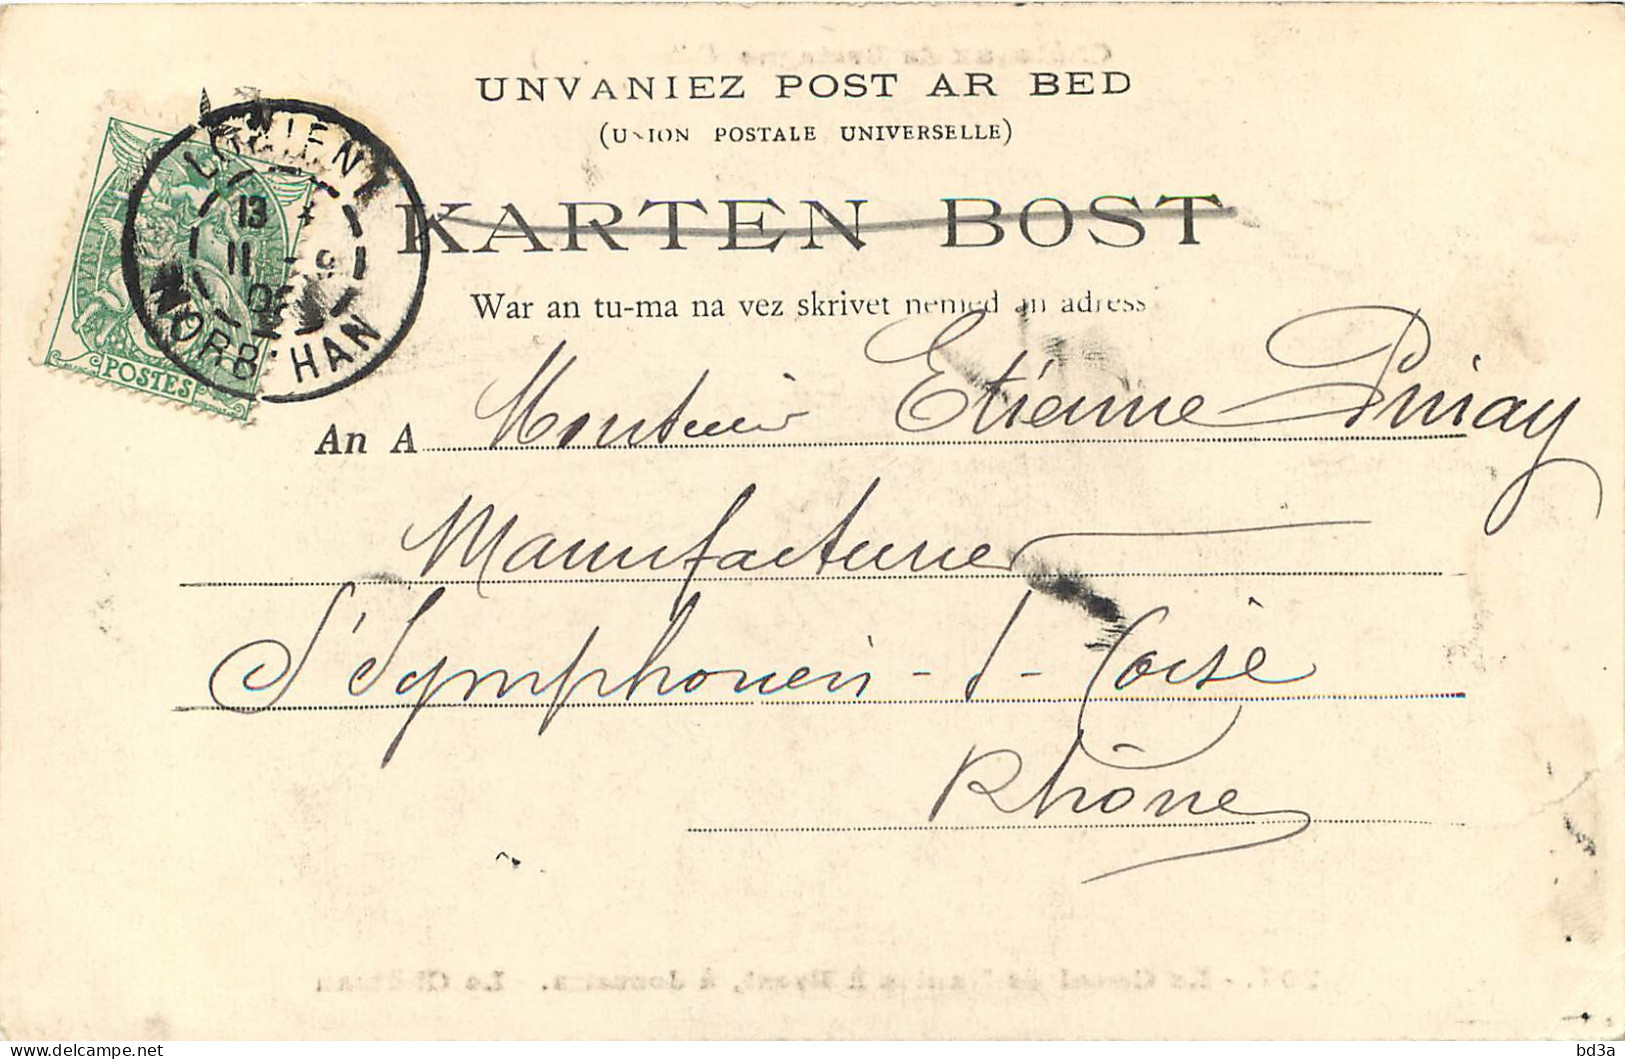 UNVANIEZ POST AR BED
(UNION POSTALE UNIVERSELLE)
KARTEN BOST
War an tu-ma na vez skrivet nemed an adress
LORIENT
13
11 - 9
MORBIHAN
POSTES
An A Monsieur Etienne
Manufacturier
St Symphorien-s-Coise
Rhône
bd3a